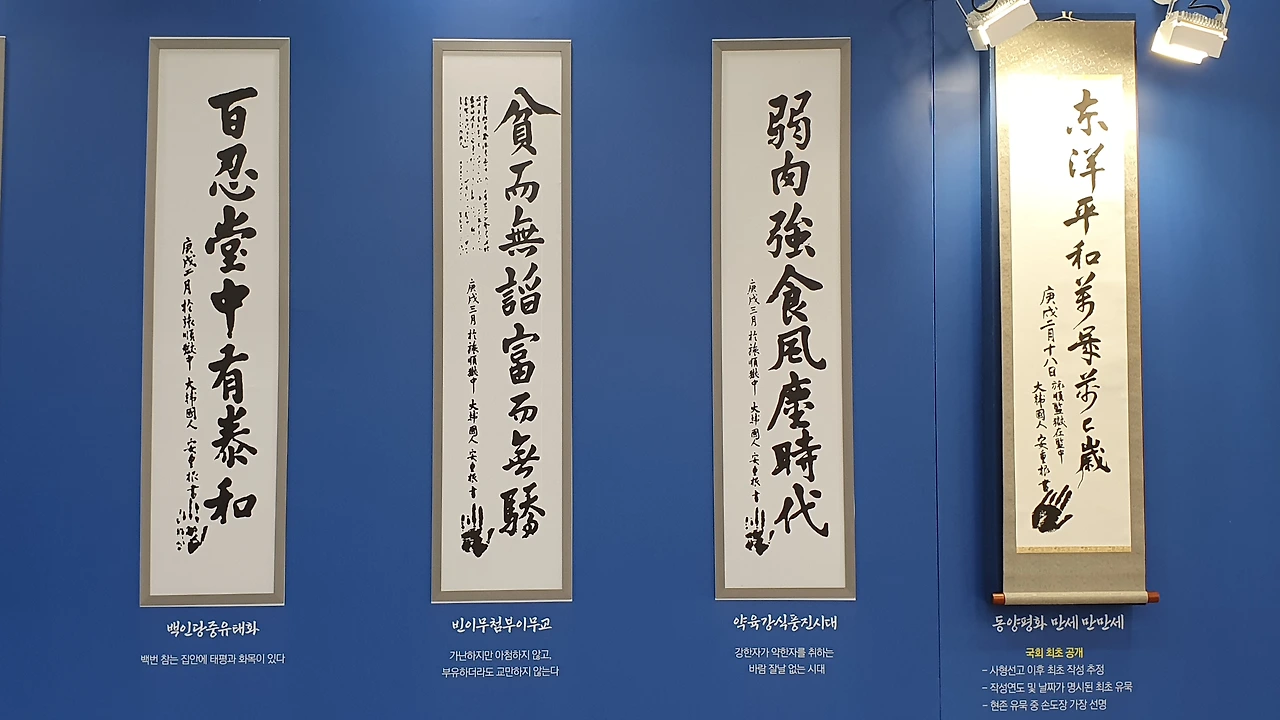 百忍堂中有泰和
庚戌二月 於旅順獄中 大韓國人 安重根 書
백인당중유태화
백번 참는 집안에 태평과 화목이 있다
貧而無謟富而無驕
庚戌三月 於旅順獄中 大韓國人 安重根 書
빈이무첨부이무교
가난하지만 아첨하지 않고,
부유하더라도 교만하지 않는다
弱肉強食風塵時代
庚戌三月 於旅順獄中 大韓國人 安重根 書
약육강식풍진시대
강한자가 약한자를 취하는
바람 잘날 없는 시대
东洋平和萬歲萬〻歲
庚戌二月十八日
旅順監獄在監中
大韓國人 安重根 書
동양평화 만세 만만세
국회 최초 공개
- 사형선고 이후 최초 작성 추정
- 작성연도 및 날짜가 명시된 최초 유묵
- 현존 유묵 중 손도장 가장 선명